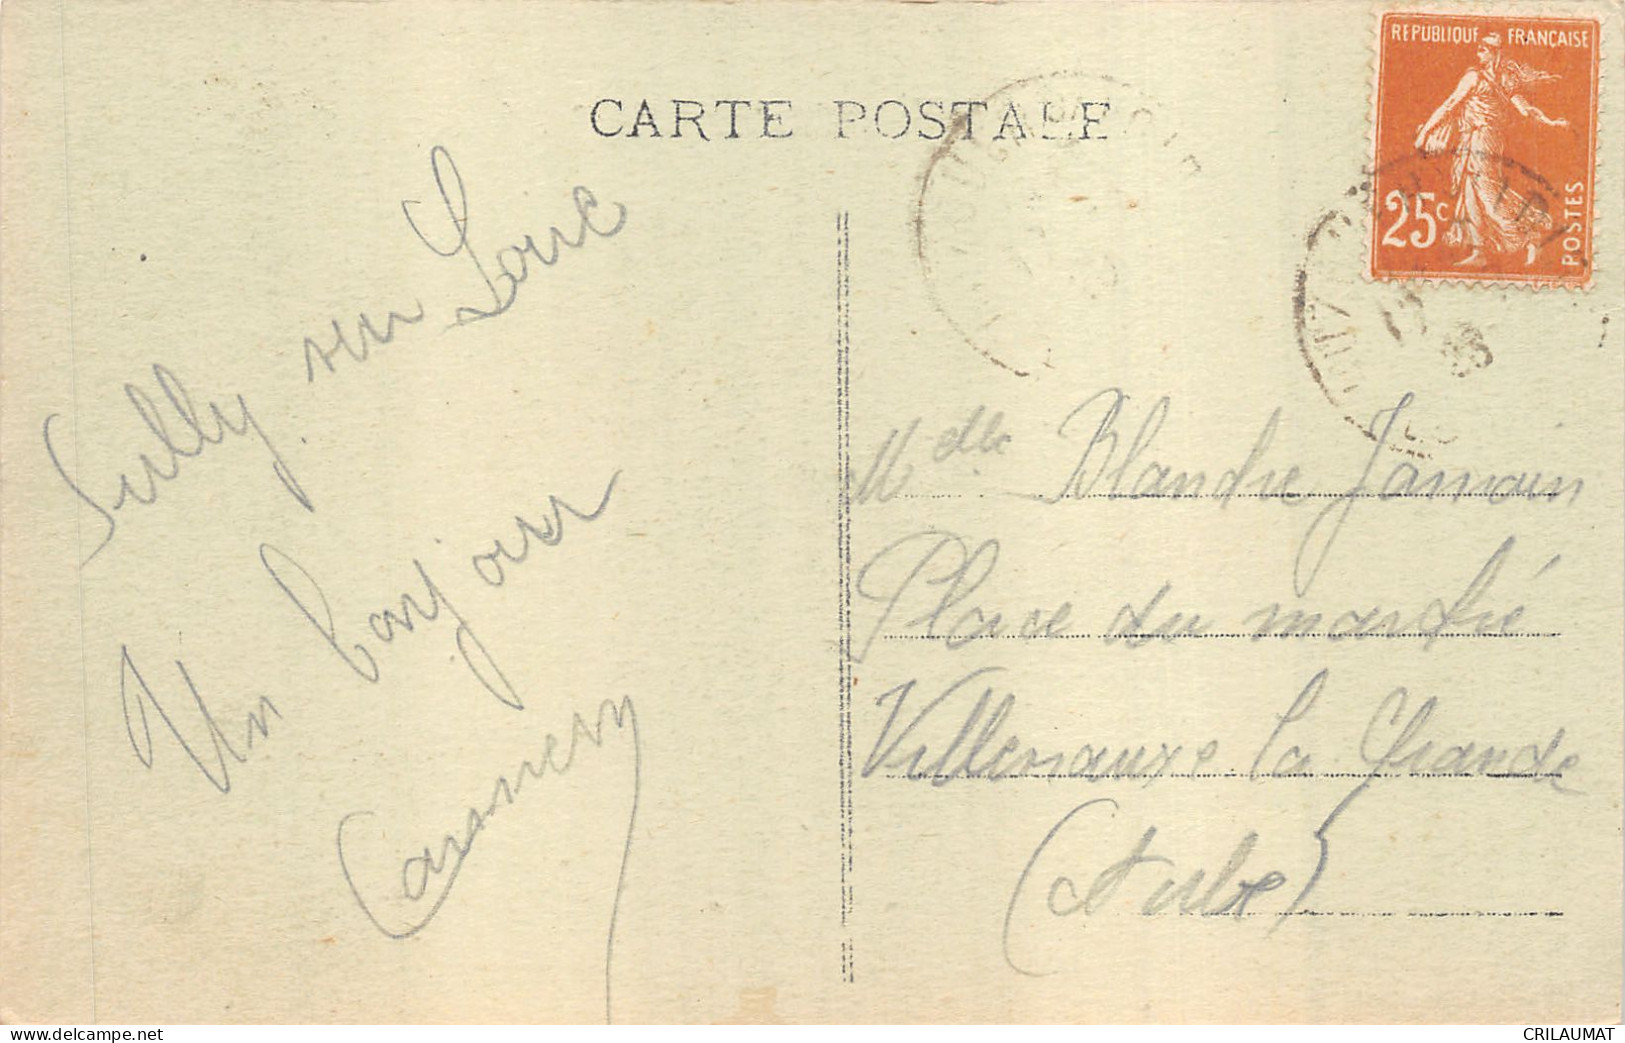 CARTE POSTALE
REPUBLIQUE FRANÇAISE
25c
POSTES
Sully sur Loire
Un bonjour
Mdlle Blandie Jamain
Place du marché
Villenauxe la Grande
(Aube)
www.delcampe.net
CRILAUMAT